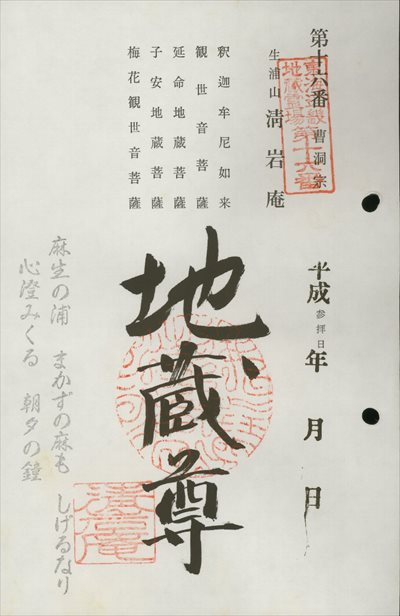 第十六番 曹洞宗
東海近畿
地蔵霊場第十六番
生浦山 清岩庵
釈迦牟尼如来
観世音菩薩
延命地蔵菩薩
子安地蔵菩薩
梅花観世音菩薩
平成 年 月 日
参拝日
地蔵尊
清岩庵
麻生の浦 まかずの麻も しげるなり
心澄みくる 朝夕の鐘